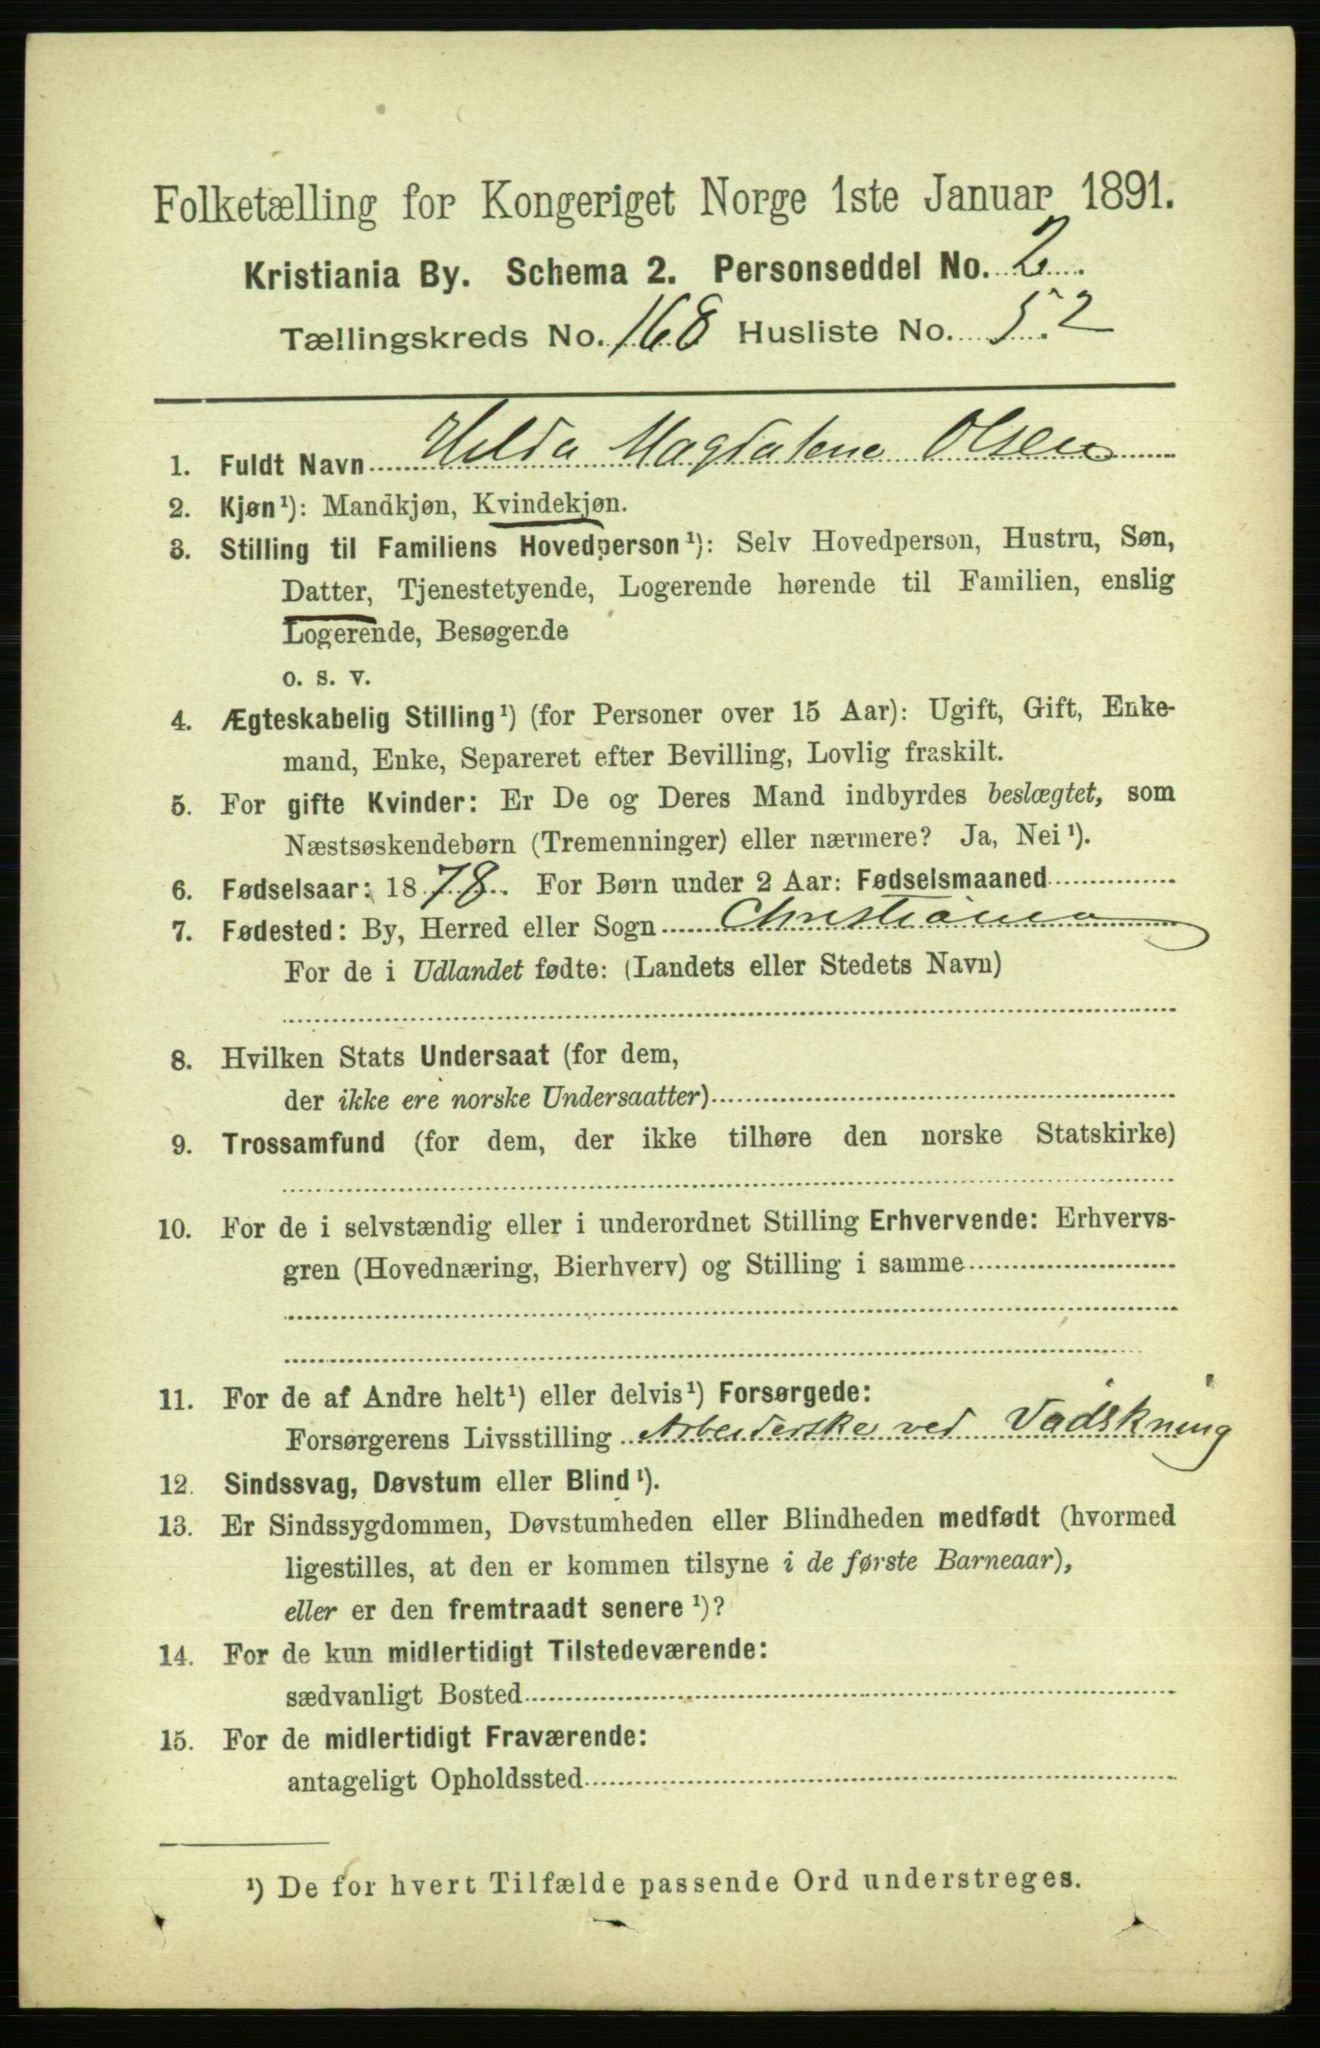 Folketælling for Kongeriget Norge 1ste Januar 1891.
Kristiania By. Schema 2. Personseddel No. 2.
Tællingskreds No. 168 Husliste No. 52
1. Fuldt Navn Hilda Magdalene Olsen
2. Kjøn¹): Mandkjøn, Kvindekjøn.
3. Stilling til Familiens Hovedperson¹): Selv Hovedperson, Hustru, Søn,
Datter, Tjenestetyende, Logerende hørende til Familien, enslig
Logerende, Besøgende
o. s. v.
4. Ægteskabelig Stilling¹) (for Personer over 15 Aar): Ugift, Gift, Enke-
mand, Enke, Separeret efter Bevilling, Lovlig fraskilt.
5. For gifte Kvinder: Er De og Deres Mand indbyrdes beslægtet, som
Næstsøskendebørn (Tremenninger) eller nærmere? Ja, Nei¹).
6. Fødselsaar: 1878. For Børn under 2 Aar: Fødselsmaaned
7. Fødested: By, Herred eller Sogn Christiania
For de i Udlandet fødte: (Landets eller Stedets Navn)
8. Hvilken Stats Undersaat (for dem,
der ikke ere norske Undersaatter)
9. Trossamfund (for dem, der ikke tilhøre den norske Statskirke)
10. For de i selvstændig eller i underordnet Stilling Erhvervende: Erhvervs-
gren (Hovednæring, Bierhverv) og Stilling i samme
11. For de af Andre helt¹) eller delvis¹) Forsørgede:
Forsørgerens Livsstilling Arbeiderske ved Vadskning
12. Sindssvag, Døvstum eller Blind¹).
13. Er Sindssygdommen, Døvstumheden eller Blindheden medfødt (hvormed
ligestilles, at den er kommen tilsyne i de første Barneaar),
eller er den fremtraadt senere¹)?
14. For de kun midlertidigt Tilstedeværende:
sædvanligt Bosted
15. For de midlertidigt Fraværende:
antageligt Opholdssted
¹) De for hvert Tilfælde passende Ord understreges.